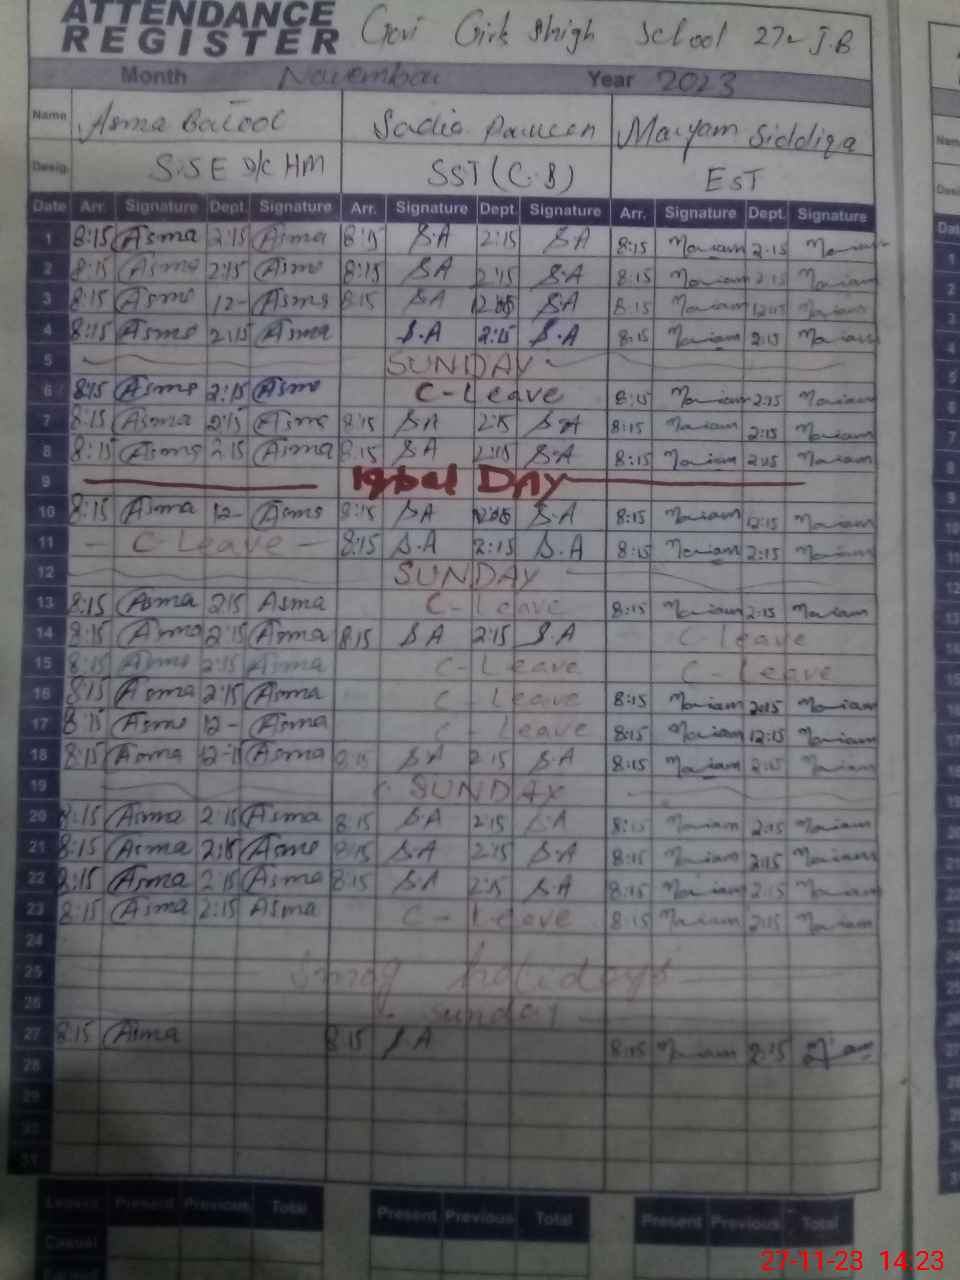 ATTENDANCE
REGISTER Govt Girls High School 27 J.B
Month November Year 2023
Name Asma Batool Sadia Parveen Maryam Siddiqa
Desig. S.S.E I/C HM SST (C.B) EST
Date Arr. Signature Dept. Signature Arr. Signature Dept. Signature Arr. Signature Dept. Signature
1 8:15 Asma 2:15 Asma 8:15 S.A 2:15 S.A 8:15 Mariam 2:15 Mariam
2 8:15 Asma 2:15 Asma 8:15 S.A 2:15 S.A 8:15 Mariam 2:15 Mariam
3 8:15 Asma 12- Asma 8:15 S.A S.A 8:15 Mariam 12:15 Mariam
4 8:15 Asma 2:15 Asma S.A 2:15 S.A 8:15 Mariam 2:15 Mariam
5 SUNDAY
6 8:15 Asma 2:15 Asma C-Leave 8:15 Mariam 2:15 Mariam
7 8:15 Asma 2:15 Asma 8:15 S.A 2:15 S.A 8:15 Mariam 2:15 Mariam
8 8:15 Asma 2:15 Asma 8:15 S.A 2:15 S.A 8:15 Mariam 2:15 Mariam
9 Iqbal DAY
10 8:15 Asma 12- Asma 8:15 S.A S.A 8:15 Mariam 12:15 Mariam
11 - C-Leave - 8:15 S.A 2:15 S.A 8:15 Mariam 2:15 Mariam
12 SUNDAY
13 8:15 Asma 2:15 Asma C-Leave 8:15 Mariam 2:15 Mariam
14 8:15 Asma 2:15 Asma 8:15 S.A 2:15 S.A C-Leave
15 8:15 Asma 2:15 Asma C-Leave C-Leave
16 8:15 Asma 2:15 Asma C-Leave 8:15 Mariam 2:15 Mariam
17 8:15 Asma 12- Asma C-Leave 8:15 Mariam 12:15 Mariam
18 8:15 Asma Asma 8:15 S.A 2:15 S.A 8:15 Mariam 2:15 Mariam
19 SUNDAY
20 8:15 Asma 2:15 Asma 8:15 S.A 2:15 S.A 8:15 Mariam 2:15 Mariam
21 8:15 Asma 2:15 Asma 8:15 S.A 2:15 S.A 8:15 Mariam 2:15 Mariam
22 8:15 Asma 2:15 Asma 8:15 S.A 2:15 S.A 8:15 Mariam 2:15 Mariam
23 8:15 Asma 2:15 Asma C-Leave 8:15 Mariam 2:15 Mariam
24
25 Smog holidays
26 Sunday
27 8:15 Asma 8:15 S.A 8:15 Mariam 2:15
28
29
30
31
Leaves Present Previous Total Present Previous Total Present Previous Total
Casual
27-11-23 14:23